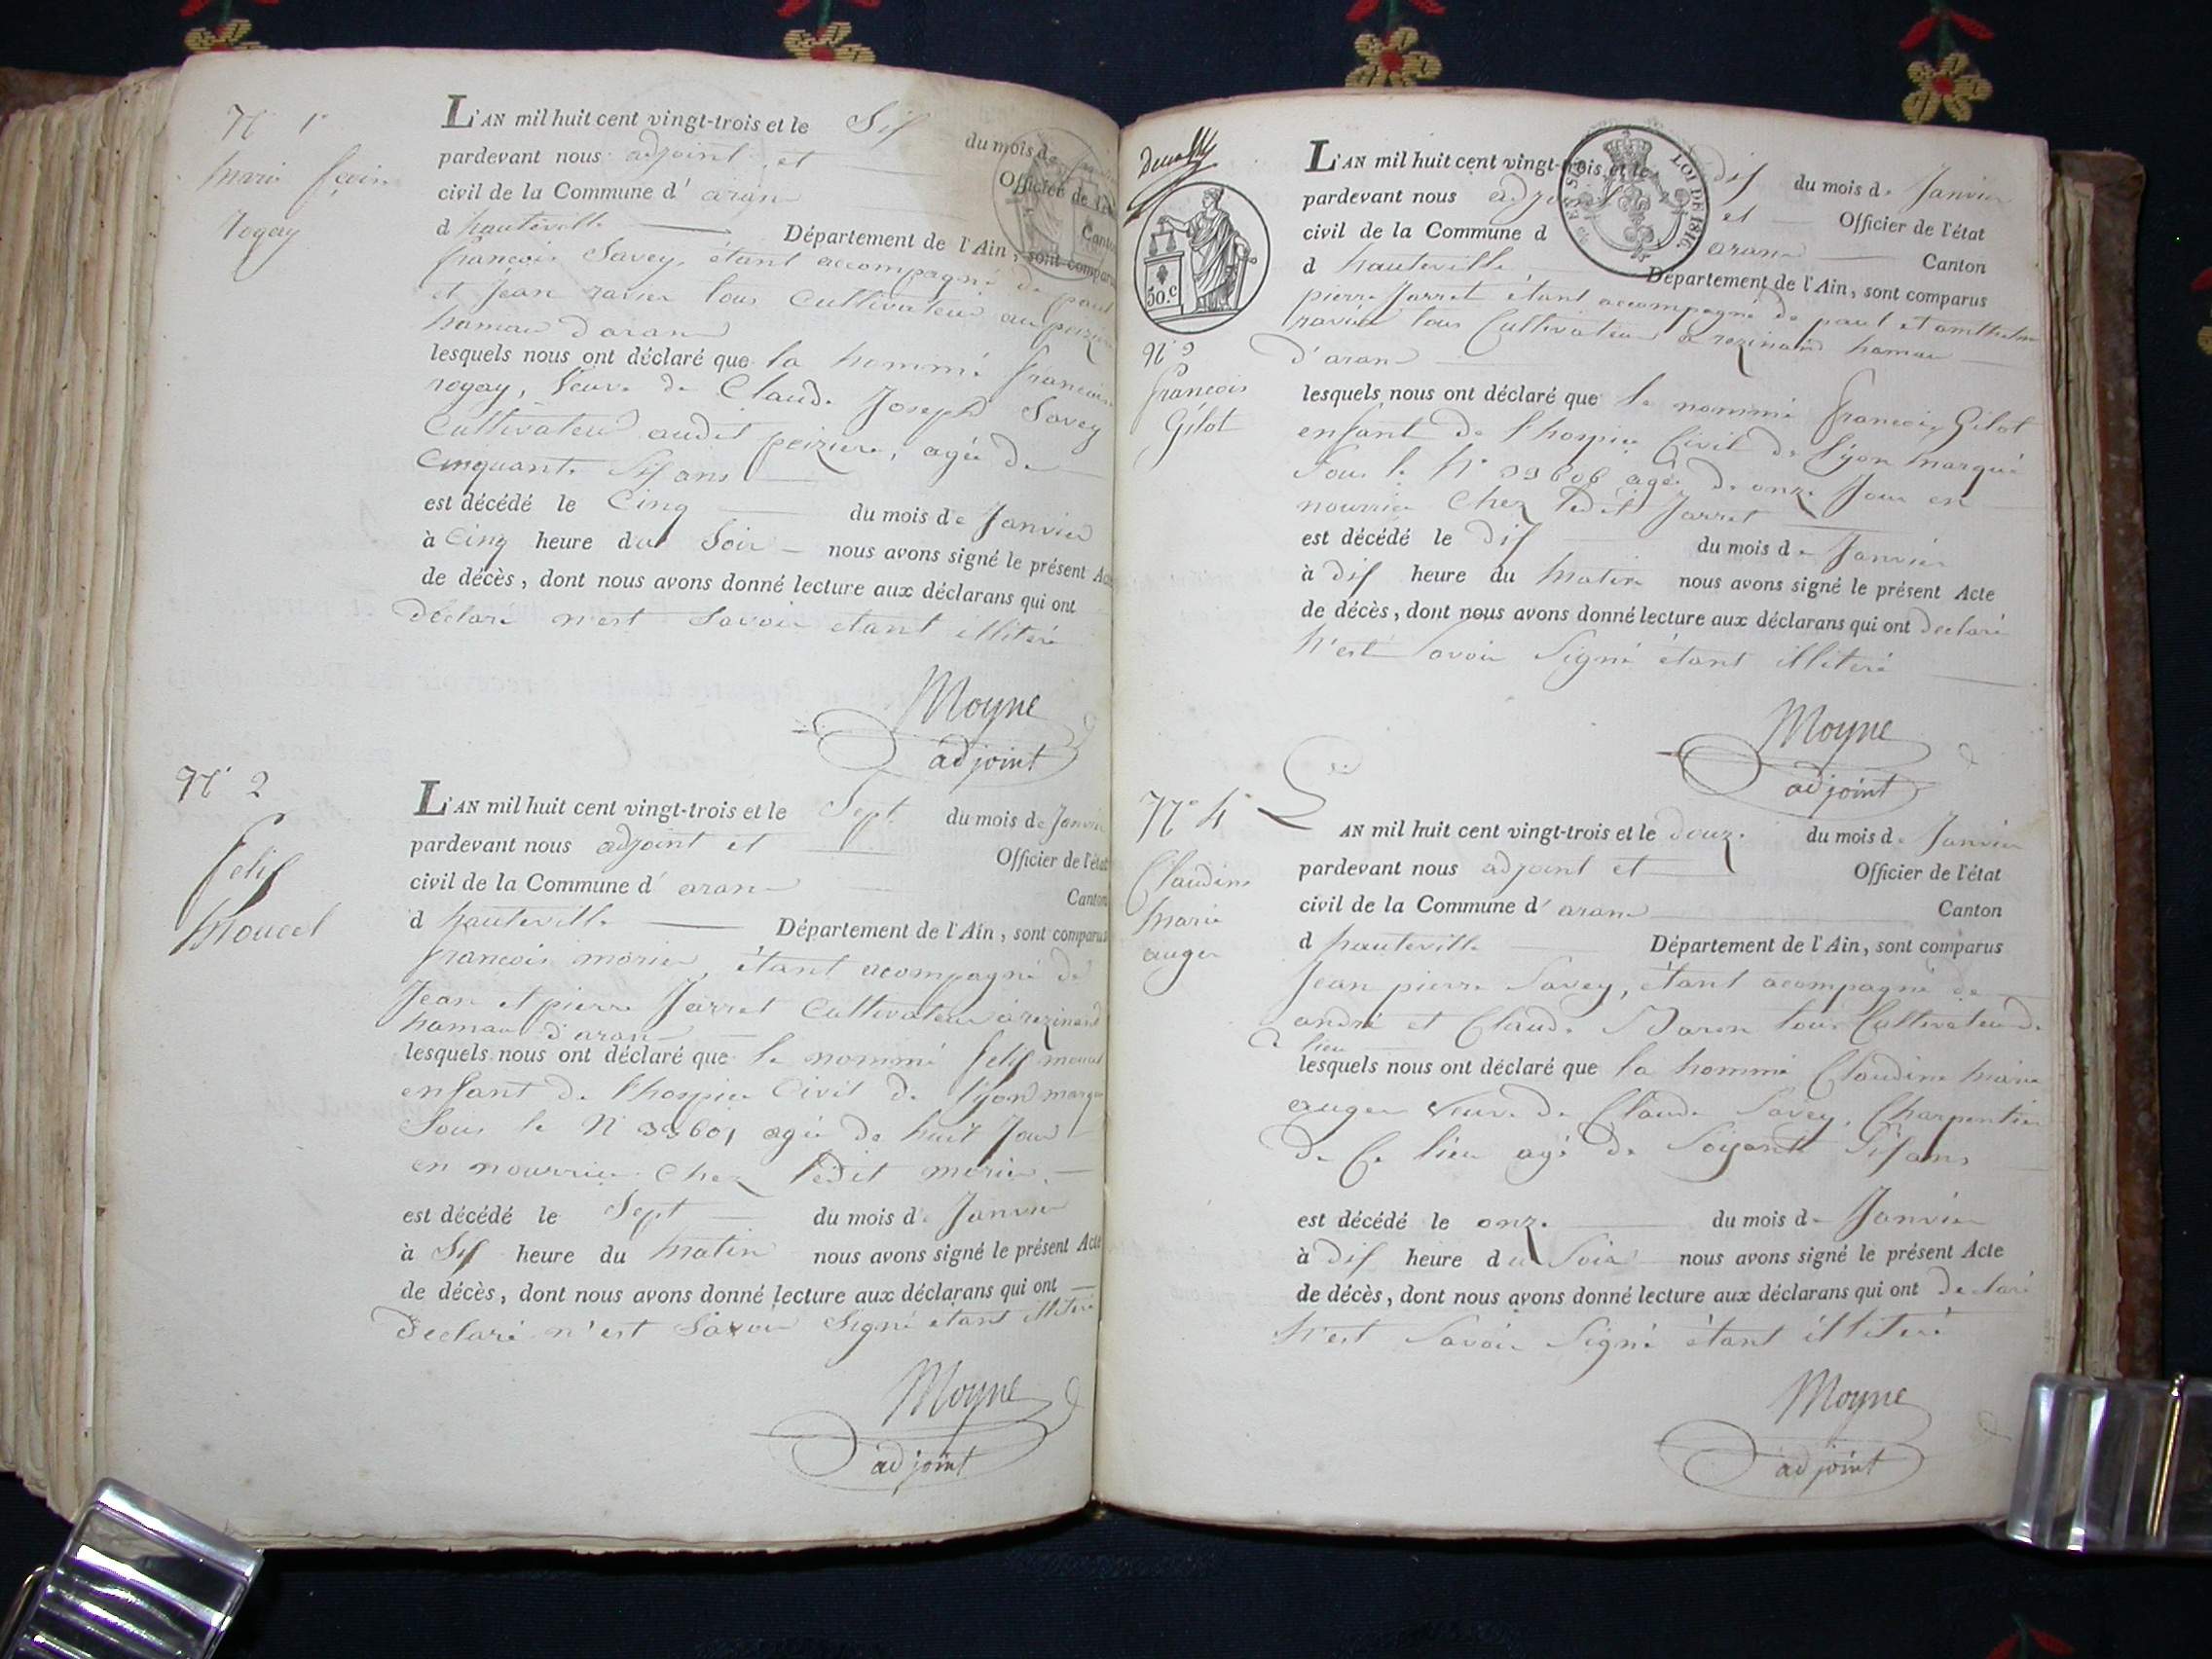 N° 1er
marie
rogay
L'AN mil huit cent vingt-trois et le Six du mois de
pardevant nous adjoint et Officier de l'état
civil de la Commune d' aran Canton
d hauteville Département de l'Ain, sont comparus
francois Savey, étant accompagné de paul
et Jean ravier tous Cultivateur au peizieu
hamau d'aran
lesquels nous ont déclaré que la nommé francoise
rogay, Veuve de Claude Joseph Savey
Cultivateur audit peizieu, agée de
Cinquante Six ans
est décédé le Cinq du mois de Janvier
à Cinq heure du Soir nous avons signé le présent Acte
de décès, dont nous avons donné lecture aux déclarans qui ont
déclaré n'est Savoir etant illiteré
Moyne
adjoint
N° 2
felix
Moucel
L'AN mil huit cent vingt-trois et le Sept du mois de Janvier
pardevant nous adjoint et Officier de l'état
civil de la Commune d' aran Canton
d hauteville Département de l'Ain, sont comparus
francois morier, étant acompagné de
Jean et pierre Jarret Cultivateur à rezinand
hamau d'aran
lesquels nous ont déclaré que le nommé felix moucel
enfant de l'hospice Civil de lyon marqué
Sous le N° 33601 agée de huit Jour
en nourrice chez ledit morier
est décédé le Sept du mois d Janvier
à Six heure du matin nous avons signé le présent Acte
de décès, dont nous avons donné lecture aux déclarans qui ont
declaré n'est Savoir Signé étant illiteré
Moyne
adjoint
50.c
LOI DE 1816
N° 3
francois
Gilot
L'AN mil huit cent vingt-trois et le dix du mois de Janvier
pardevant nous adjoint et Officier de l'état
civil de la Commune d aran Canton
d hauteville Département de l'Ain, sont comparus
pierre Jarret étant accompagné de paul et anthelme
ravier tous Cultivateur à rezinand hamau
d'aran
lesquels nous ont déclaré que le nommé francois Gilot
enfant de l'hospice Civil de lyon marqué
Sous le N° 33606 agée de onze Jour en
nourrice chez ledit Jarret
est décédé le dix du mois de Janvier
à dix heure du matin nous avons signé le présent Acte
de décès, dont nous avons donné lecture aux déclarans qui ont declaré
n'est Savoir Signé étant illiteré
Moyne
adjoint
N° 4
Claudine
marie
auger
L'AN mil huit cent vingt-trois et le douze du mois de Janvier
pardevant nous adjoint et Officier de l'état
civil de la Commune d' aran Canton
d hauteville Département de l'Ain, sont comparus
Jean pierre Savey, étant acompagné de
andré et Claude Baron tous Cultivateur de
Ce lieu
lesquels nous ont déclaré que la nommé Claudine marie
auger Veuve de Claude Savey, Charpentier
de Ce lieu agé de Soixante Six ans
est décédé le onze du mois de Janvier
à dix heure du Soir nous avons signé le présent Acte
de décès, dont nous avons donné lecture aux déclarans qui ont declaré
n'est Savoir Signé étant illiteré
Moyne
adjoint